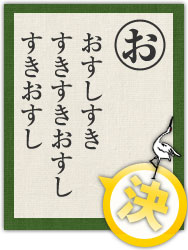 お
おすしすき
すきすきおすし
すきおすし
決